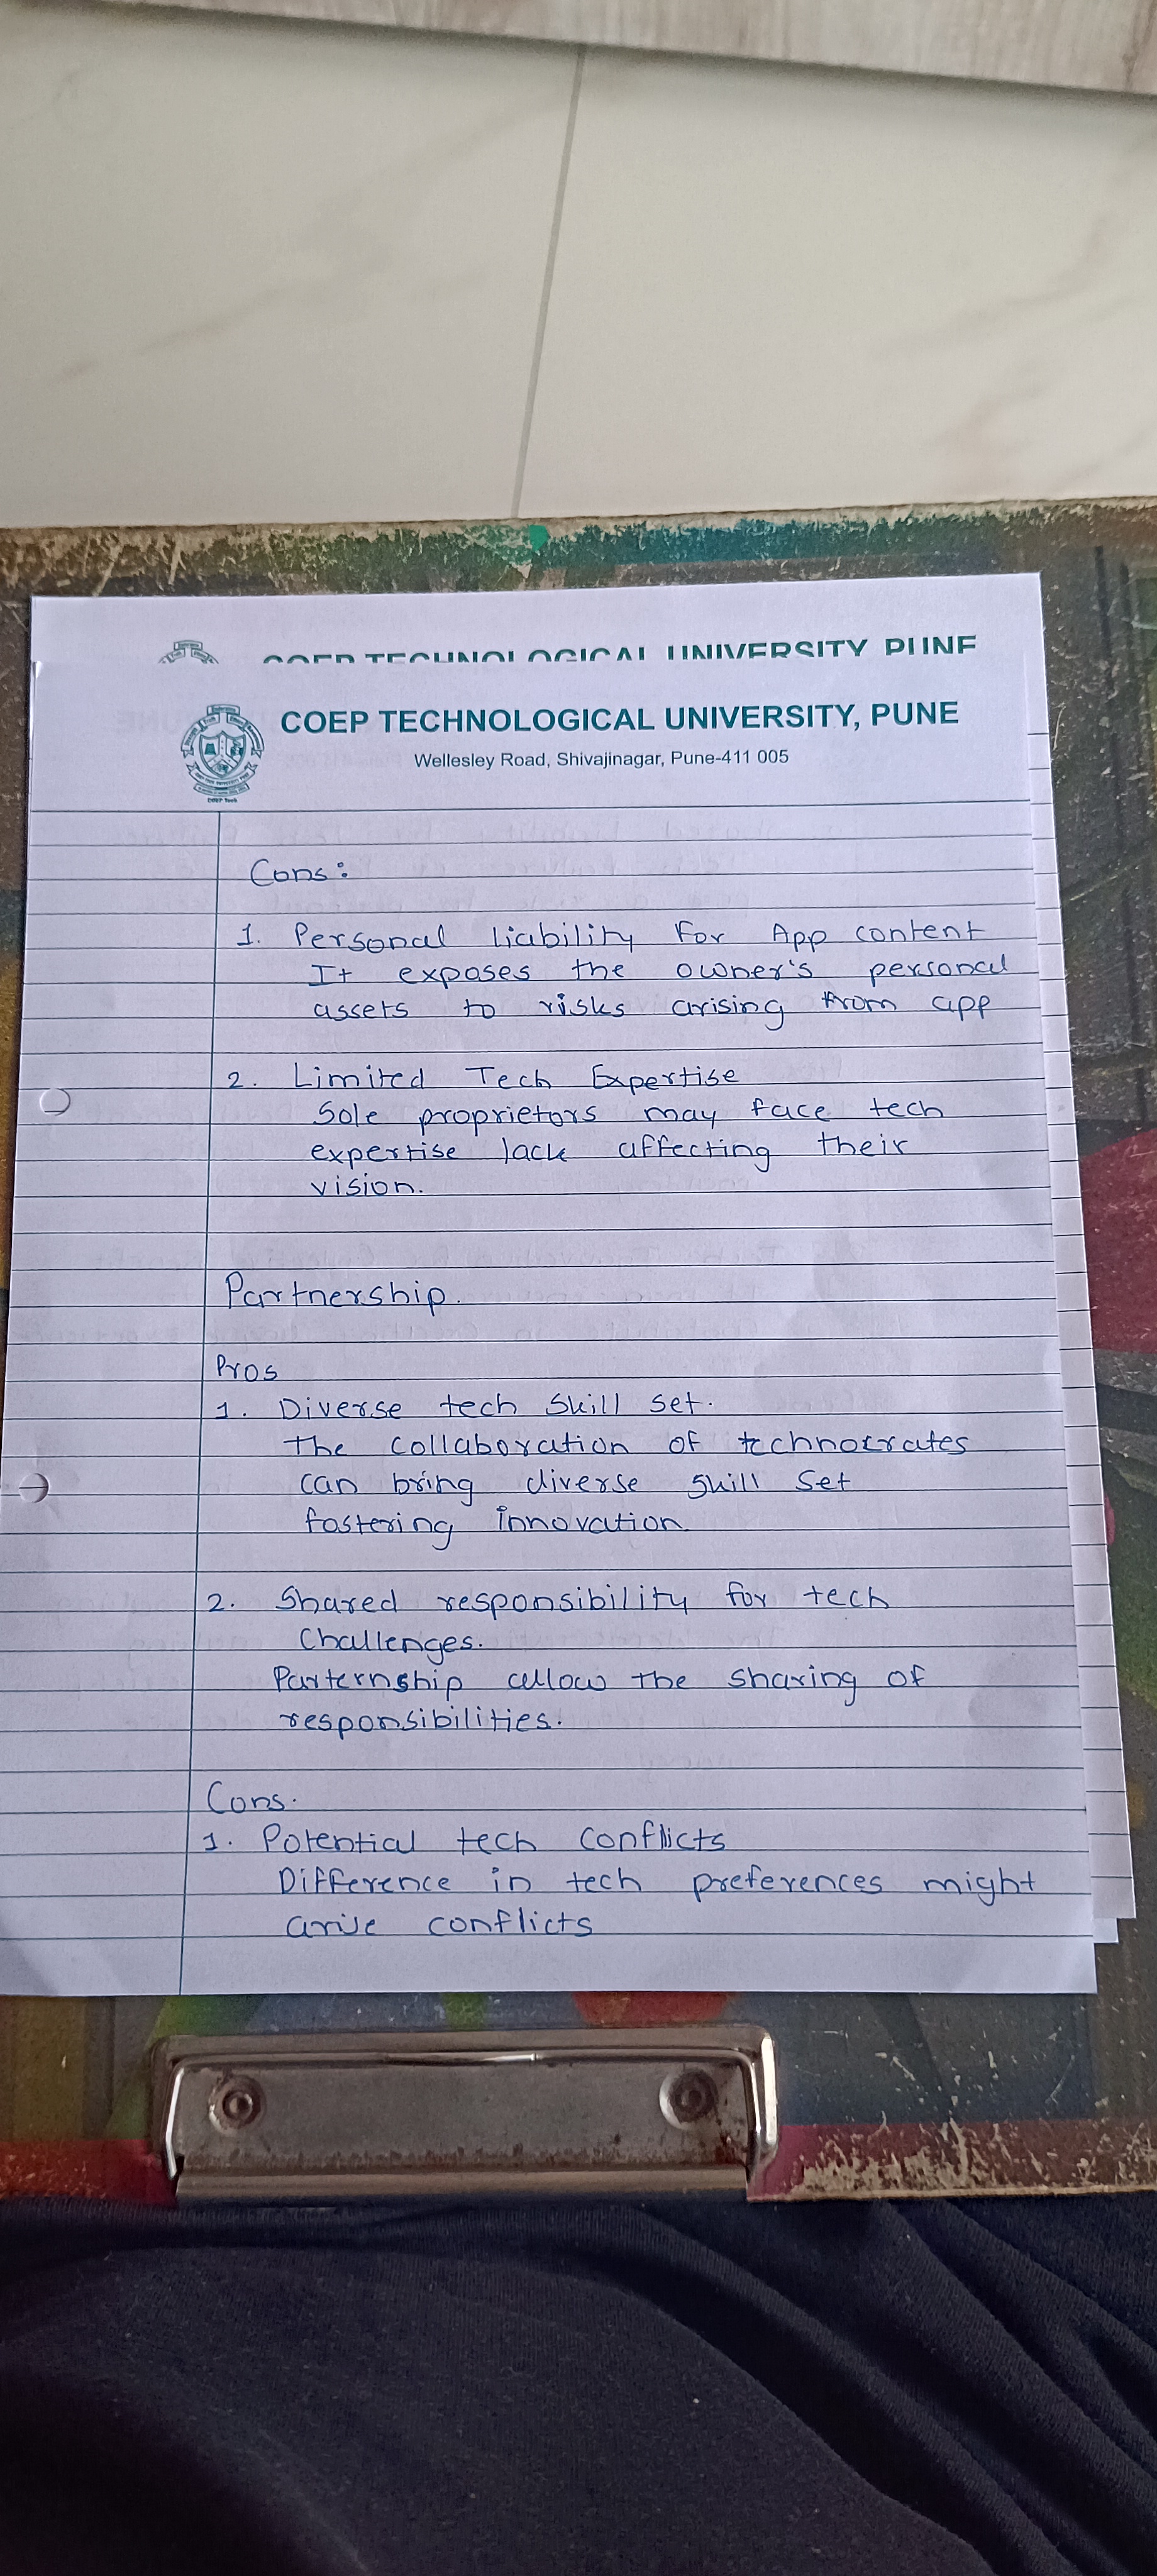 COEP TECHNOLOGICAL UNIVERSITY PUNE
COEP TECHNOLOGICAL UNIVERSITY, PUNE
Wellesley Road, Shivajinagar, Pune-411 005
COEP Tech
Cons:
1. Personal liability For App content
It exposes the owner's personal
assets to risks arising from app
2. Limited Tech Expertise
Sole proprietors may face tech
expertise lack affecting their
vision.
Partnership.
Pros
1. Diverse tech skill set.
The collaboration of technocrates
can bring diverse skill set
fostering innovation.
2. Shared responsibility for tech
challenges.
Parternship allow the sharing of
responsibilities.
Cons.
1. Potential tech conflicts
Difference in tech preferences might
arise conflicts